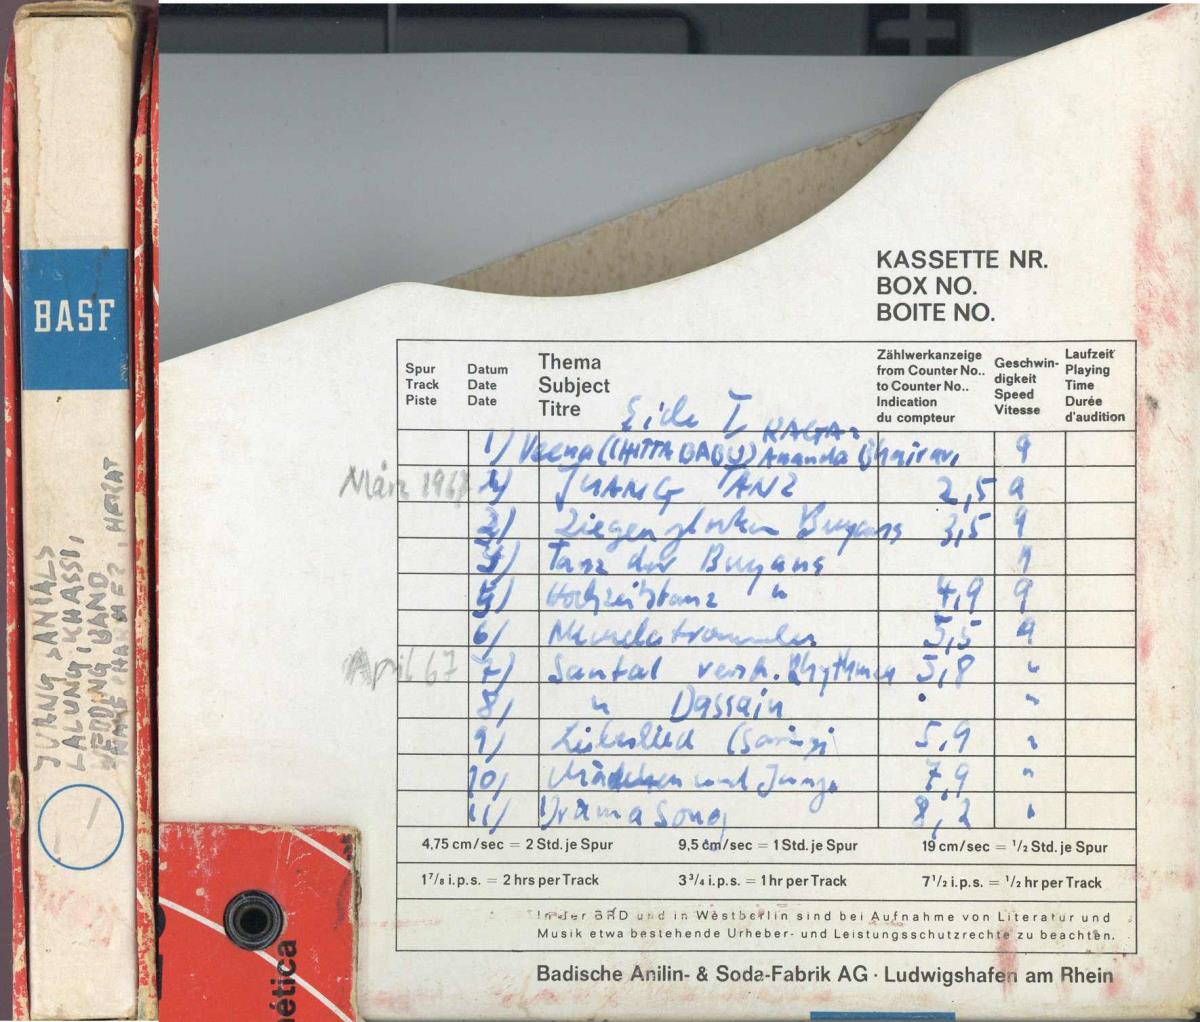 BASF
JUANG SANTALS
LALUNG KHASSI,
WEDDING BAND
HERAT
KASSETTE NR.
BOX NO.
BOITE NO.
Spur
Track
Piste
Datum
Date
Date
Thema
Subject
Titre
Zählwerkanzeige
from Counter No..
to Counter No..
Indication
du compteur
Geschwin-
digkeit
Speed
Vitesse
Laufzeit
Playing
Time
Durée
d'audition
Seite I
RAGA:
1) Veena (CHITTA BABU) Ananda Bhairavi 9
März 1967 2) JUANG TANZ 2,5 9
3) Ziegenglocken Buyans 3,5 9
4) Tanz der Buyans
5) Hochzeitstanz " 4,9 9
6) Mundatrommeln 5,5 9
April 67 7) Santal versch. Rhythmen 5,8 "
8) " Dassain "
9) Liebeslied (Saringi 5,9 "
10) Mädchen und Jungs 7,9 "
11) Drama Song 8,2 "
4,75 cm/sec = 2 Std. je Spur 9,5 cm/sec = 1 Std. je Spur 19 cm/sec = 1/2 Std. je Spur
1 7/8 i.p.s. = 2 hrs per Track 3 3/4 i.p.s. = 1 hr per Track 7 1/2 i.p.s. = 1/2 hr per Track
In der BRD und in Westberlin sind bei Aufnahme von Literatur und
Musik etwa bestehende Urheber- und Leistungsschutzrechte zu beachten.
Badische Anilin- & Soda-Fabrik AG · Ludwigshafen am Rhein
ética